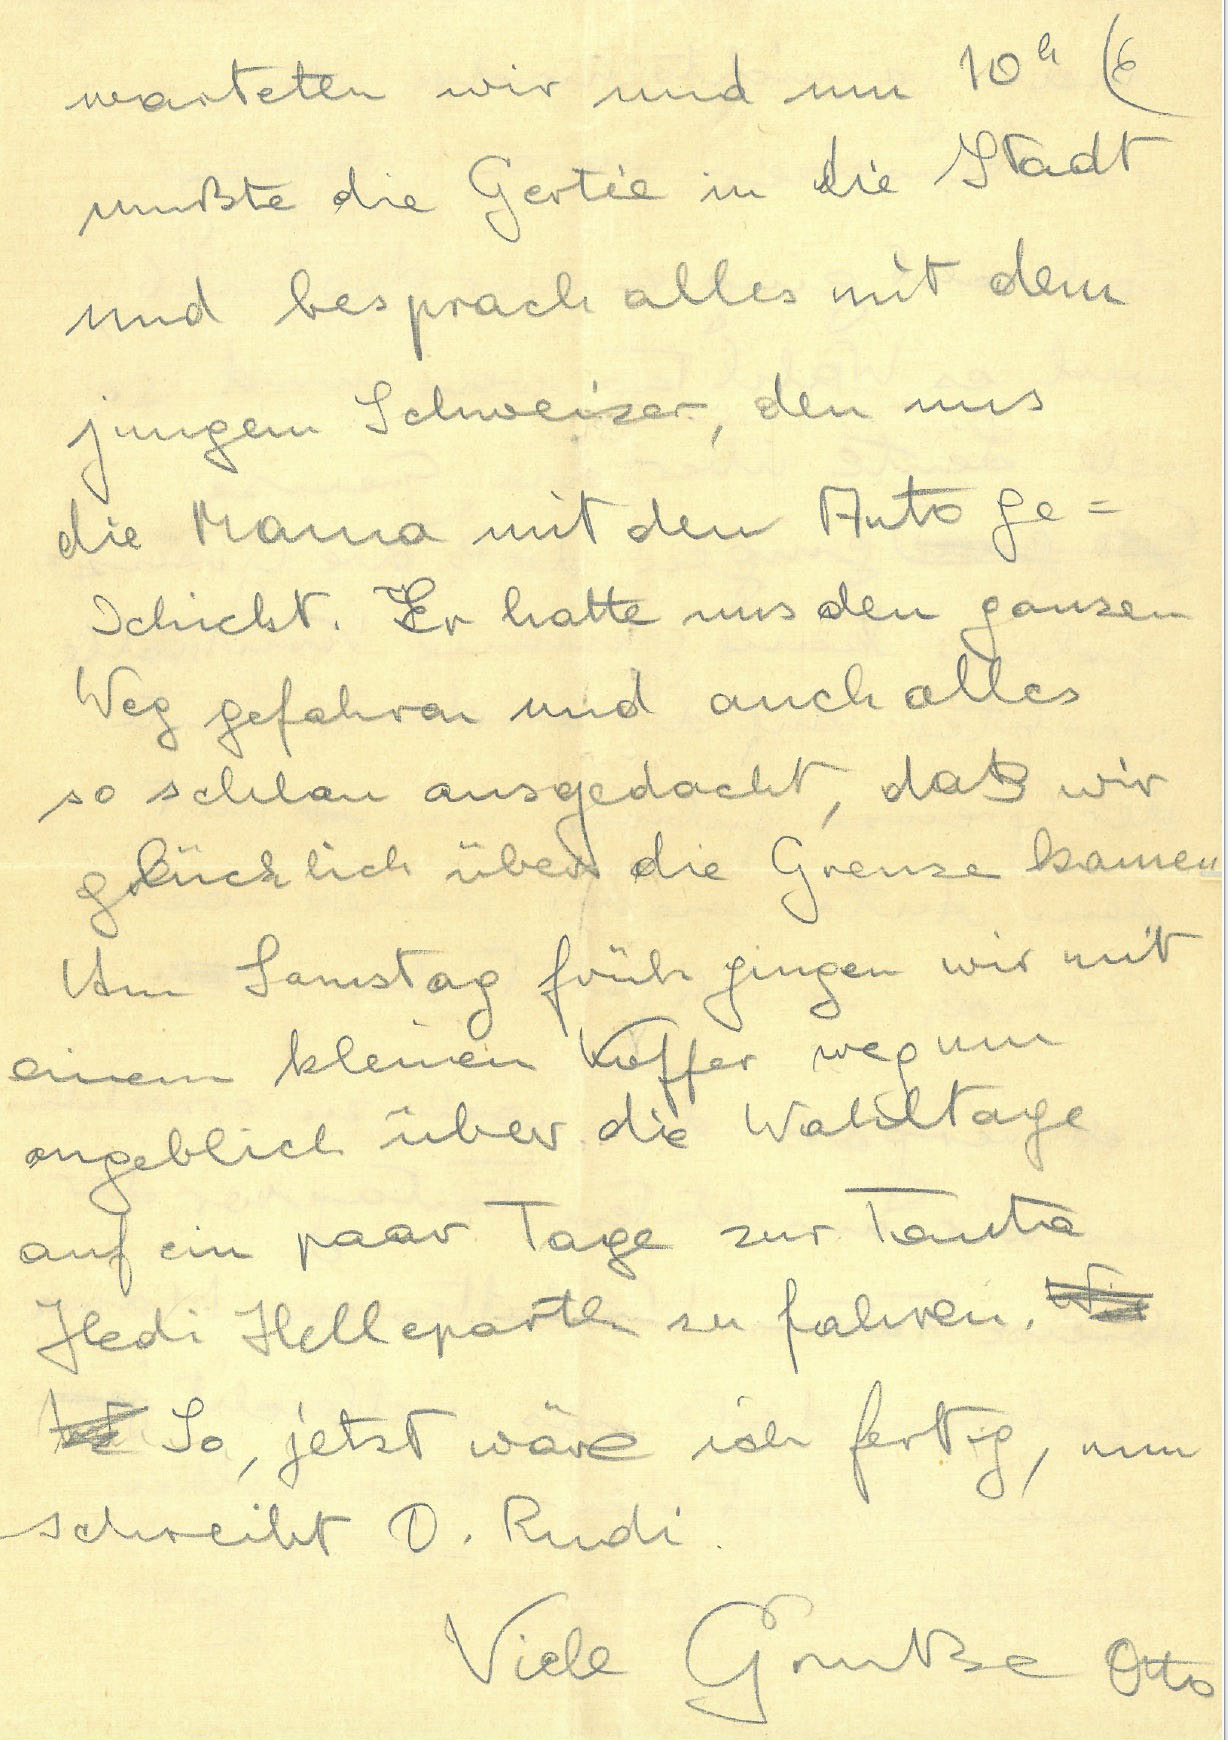 warteten wir und um 10h (6
mußte die Gertie in die Stadt
und besprach alles mit dem
jungem Schweizer, den uns
die Mama mit den Auto ge=
schickt. Er hatte uns den ganzen
Weg gefahren und auch alles
so schlau ausgedacht, daß wir
glücklich über die Grenze kamen
Am Samstag früh gingen wir mit
einem kleinen Koffer weg um
angeblich über die Wahltage
auf ein paar Tage zur Tante
Hedi Helleparth zu fahren.
So, jetzt wäre ich fertig, nun
schreibt O. Rudi.
Viele Grüße Otto